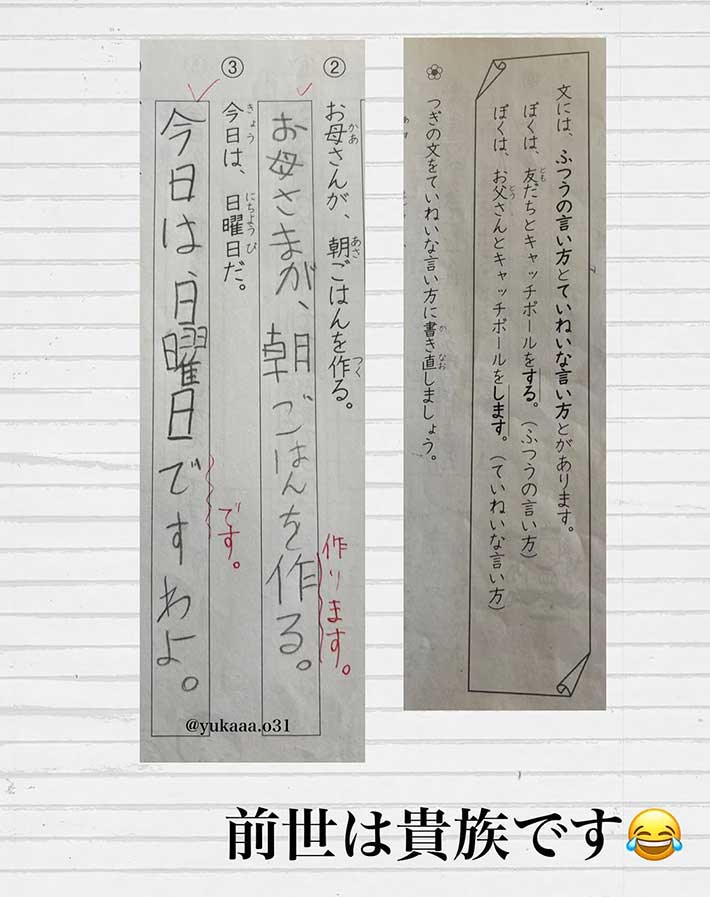 文には、ふつうの言い方とていねいな言い方とがあります。
ぼくは、友だちとキャッチボールをする。（ふつうの言い方）
ぼくは、お父さんとキャッチボールをします。（ていねいな言い方）
つぎの文をていねいな言い方に書き直しましょう。
②
お母さんが、朝ごはんを作る。
お母さまが、朝ごはんを作る。
作ります。
③
今日は、日曜日だ。
今日は、日曜日ですわよ。
です。
@yukaaa.o31
前世は貴族です😂